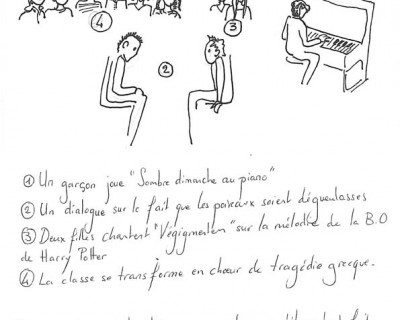 ④
③
②
① Un garçon joue "Sombre dimanche au piano"
② Un dialogue sur le fait que les poireaux soient dégueulasses
③ Deux filles chantent "Végigmentem" sur la mélodie de la B.O
de Harry Potter
④ La classe se transforme en chœur de tragédie grecque.